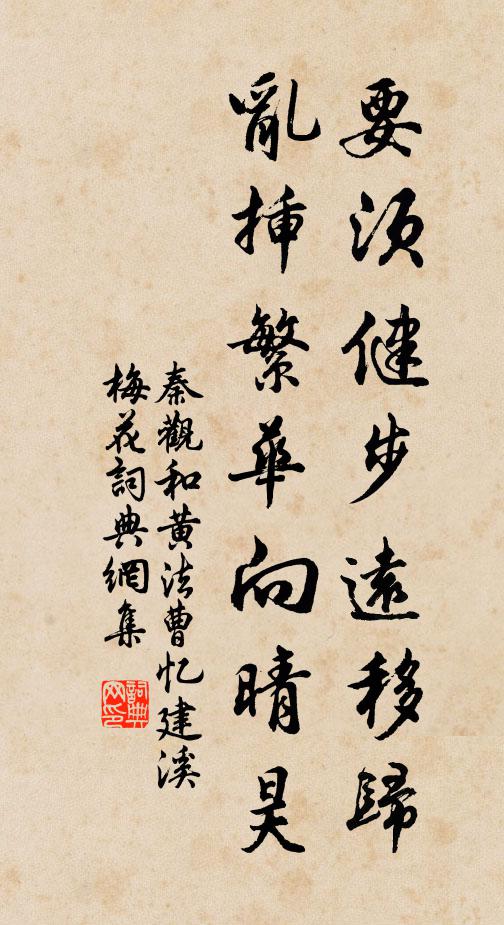 要須健步遠移歸
亂插繁華向晴昊
秦觀和黃法曹忆建溪
梅花詞典網集
詞典网印